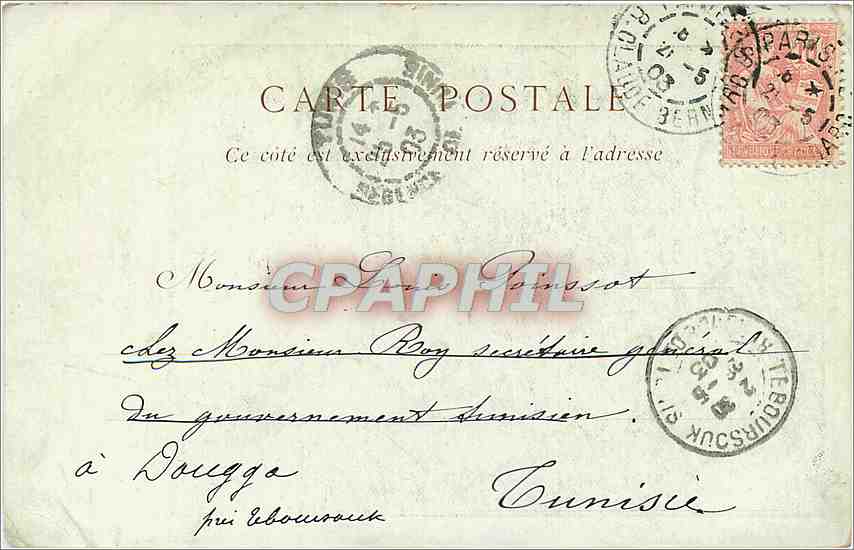 CARTE POSTALE
Ce côté est exclusivement réservé à l'adresse
Monsieur Louis Poinssot
chez Monsieur Roy secrétaire général
du gouvernement tunisien.
à Dougga
près Teboursouk
Tunisie
CPAPHIL
PARIS
R. CLAUDE BERN
TUNIS
14
5
03
TEBOURSOUK